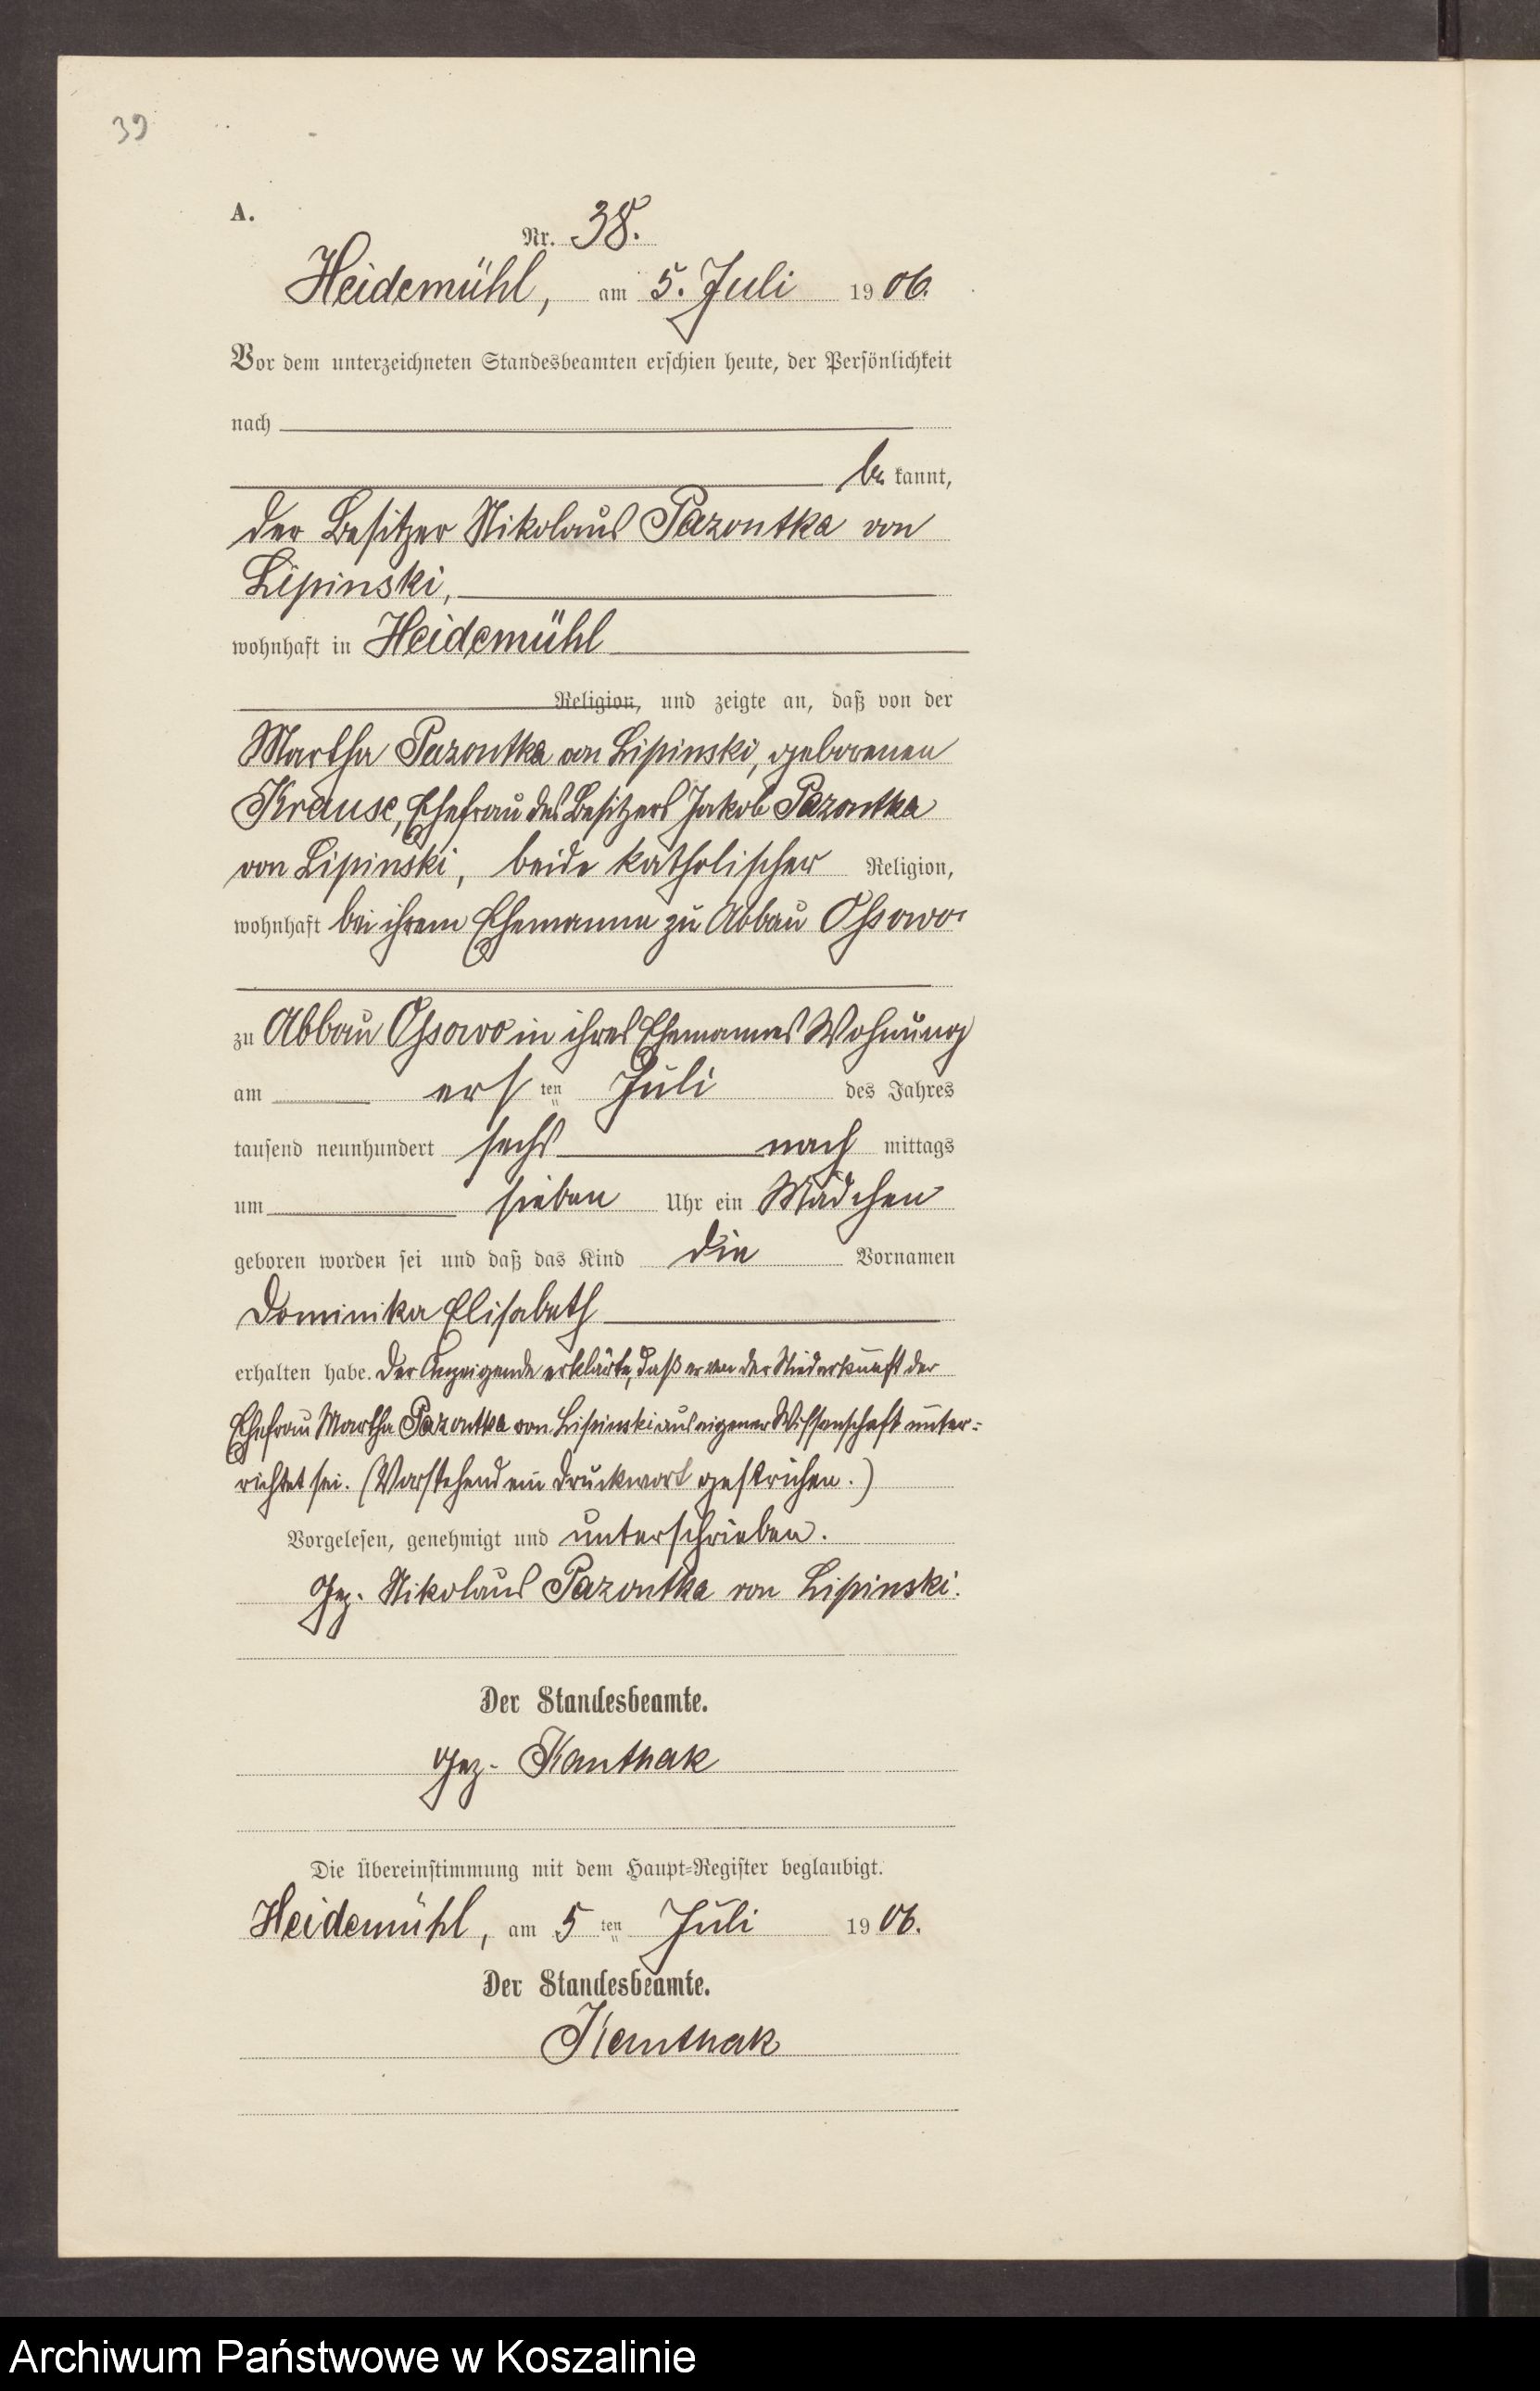 39
A.
Nr. 38.
Heidemühl, am 5. Juli 1906.
Vor dem unterzeichneten Standesbeamten erschien heute, der Persönlichkeit
nach
be kannt,
der Besitzer Nikolaus Pazontka von
Lipinski,
wohnhaft in Heidemühl
Religion, und zeigte an, daß von der
Martha Pazontka von Lipinski, geborenen
Krause, Ehefrau des Besitzers Jakob Pazontka
von Lipinski, beide katholischer Religion,
wohnhaft bei ihrem Ehemanne zu Abbau Ossowo
zu Abbau Ossowo in ihres Ehemannes Wohnung
am ersten Juli des Jahres
tausend neunhundert sechs nach mittags
um sieben Uhr ein Mädchen
geboren worden sei und daß das Kind die Vornamen
Dominika Elisabeth
erhalten habe. Der Anzeigende erklärte, daß er von der Niederkunft der
Ehefrau Martha Pazontka von Lipinski aus eigener Wissenschaft unter-
richtet sei. (Vorstehend ein Druckwort gestrichen.)
Vorgelesen, genehmigt und unterschrieben.
Gez. Nikolaus Pazontka von Lipinski.
Der Standesbeamte.
Gez. Kanthak
Die Übereinstimmung mit dem Haupt-Register beglaubigt.
Heidemühl, am 5ten Juli 1906.
Der Standesbeamte.
Kanthak
Archiwum Państwowe w Koszalinie